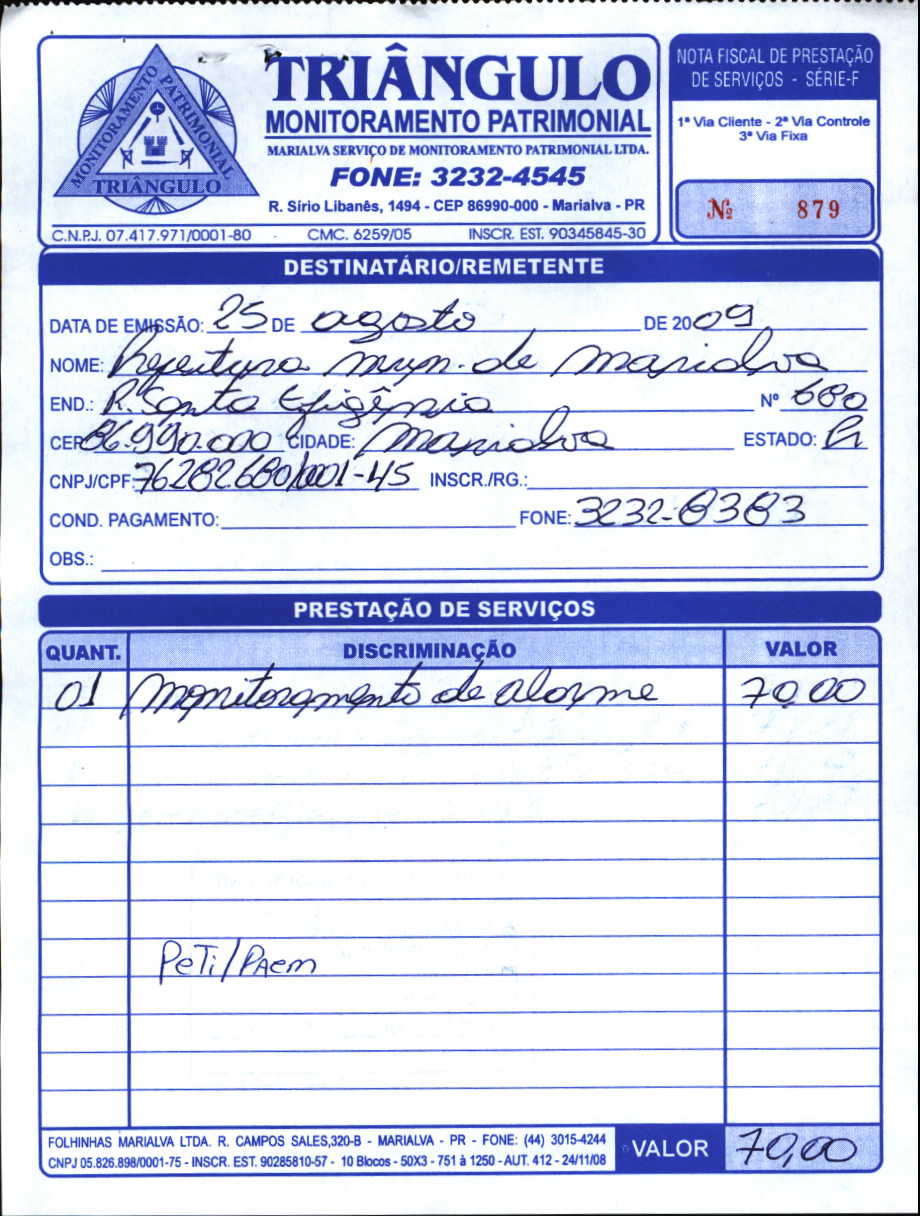 MONITORAMENTO PATRIMONIAL
TRIÂNGULO
TRIÂNGULO
MONITORAMENTO PATRIMONIAL
MARIALVA SERVIÇO DE MONITORAMENTO PATRIMONIAL LTDA.
FONE: 3232-4545
R. Sírio Libanês, 1494 - CEP 86990-000 - Marialva - PR
C.N.P.J. 07.417.971/0001-80 CMC. 6259/05 INSCR. EST. 90345845-30
NOTA FISCAL DE PRESTAÇÃO
DE SERVIÇOS - SÉRIE-F
1ª Via Cliente - 2ª Via Controle
3ª Via Fixa
Nº 879
DESTINATÁRIO/REMETENTE
DATA DE EMISSÃO: 25 DE agosto DE 2009
NOME: Prefeitura mun. de Marialva
END.: R. Santa Efigênia Nº 680
CEP: 86.990.000 CIDADE: Marialva ESTADO: Pr
CNPJ/CPF: 76282680/001-45 INSCR./RG.:
COND. PAGAMENTO: FONE: 3232-8383
OBS.:
PRESTAÇÃO DE SERVIÇOS
QUANT. DISCRIMINAÇÃO VALOR
01 Monitoramento de alarme 70,00
PeTi/PAem
FOLHINHAS MARIALVA LTDA. R. CAMPOS SALES,320-B - MARIALVA - PR - FONE: (44) 3015-4244
CNPJ 05.826.898/0001-75 - INSCR. EST. 90285810-57 - 10 Blocos - 50X3 - 751 à 1250 - AUT. 412 - 24/11/08
VALOR 70,00